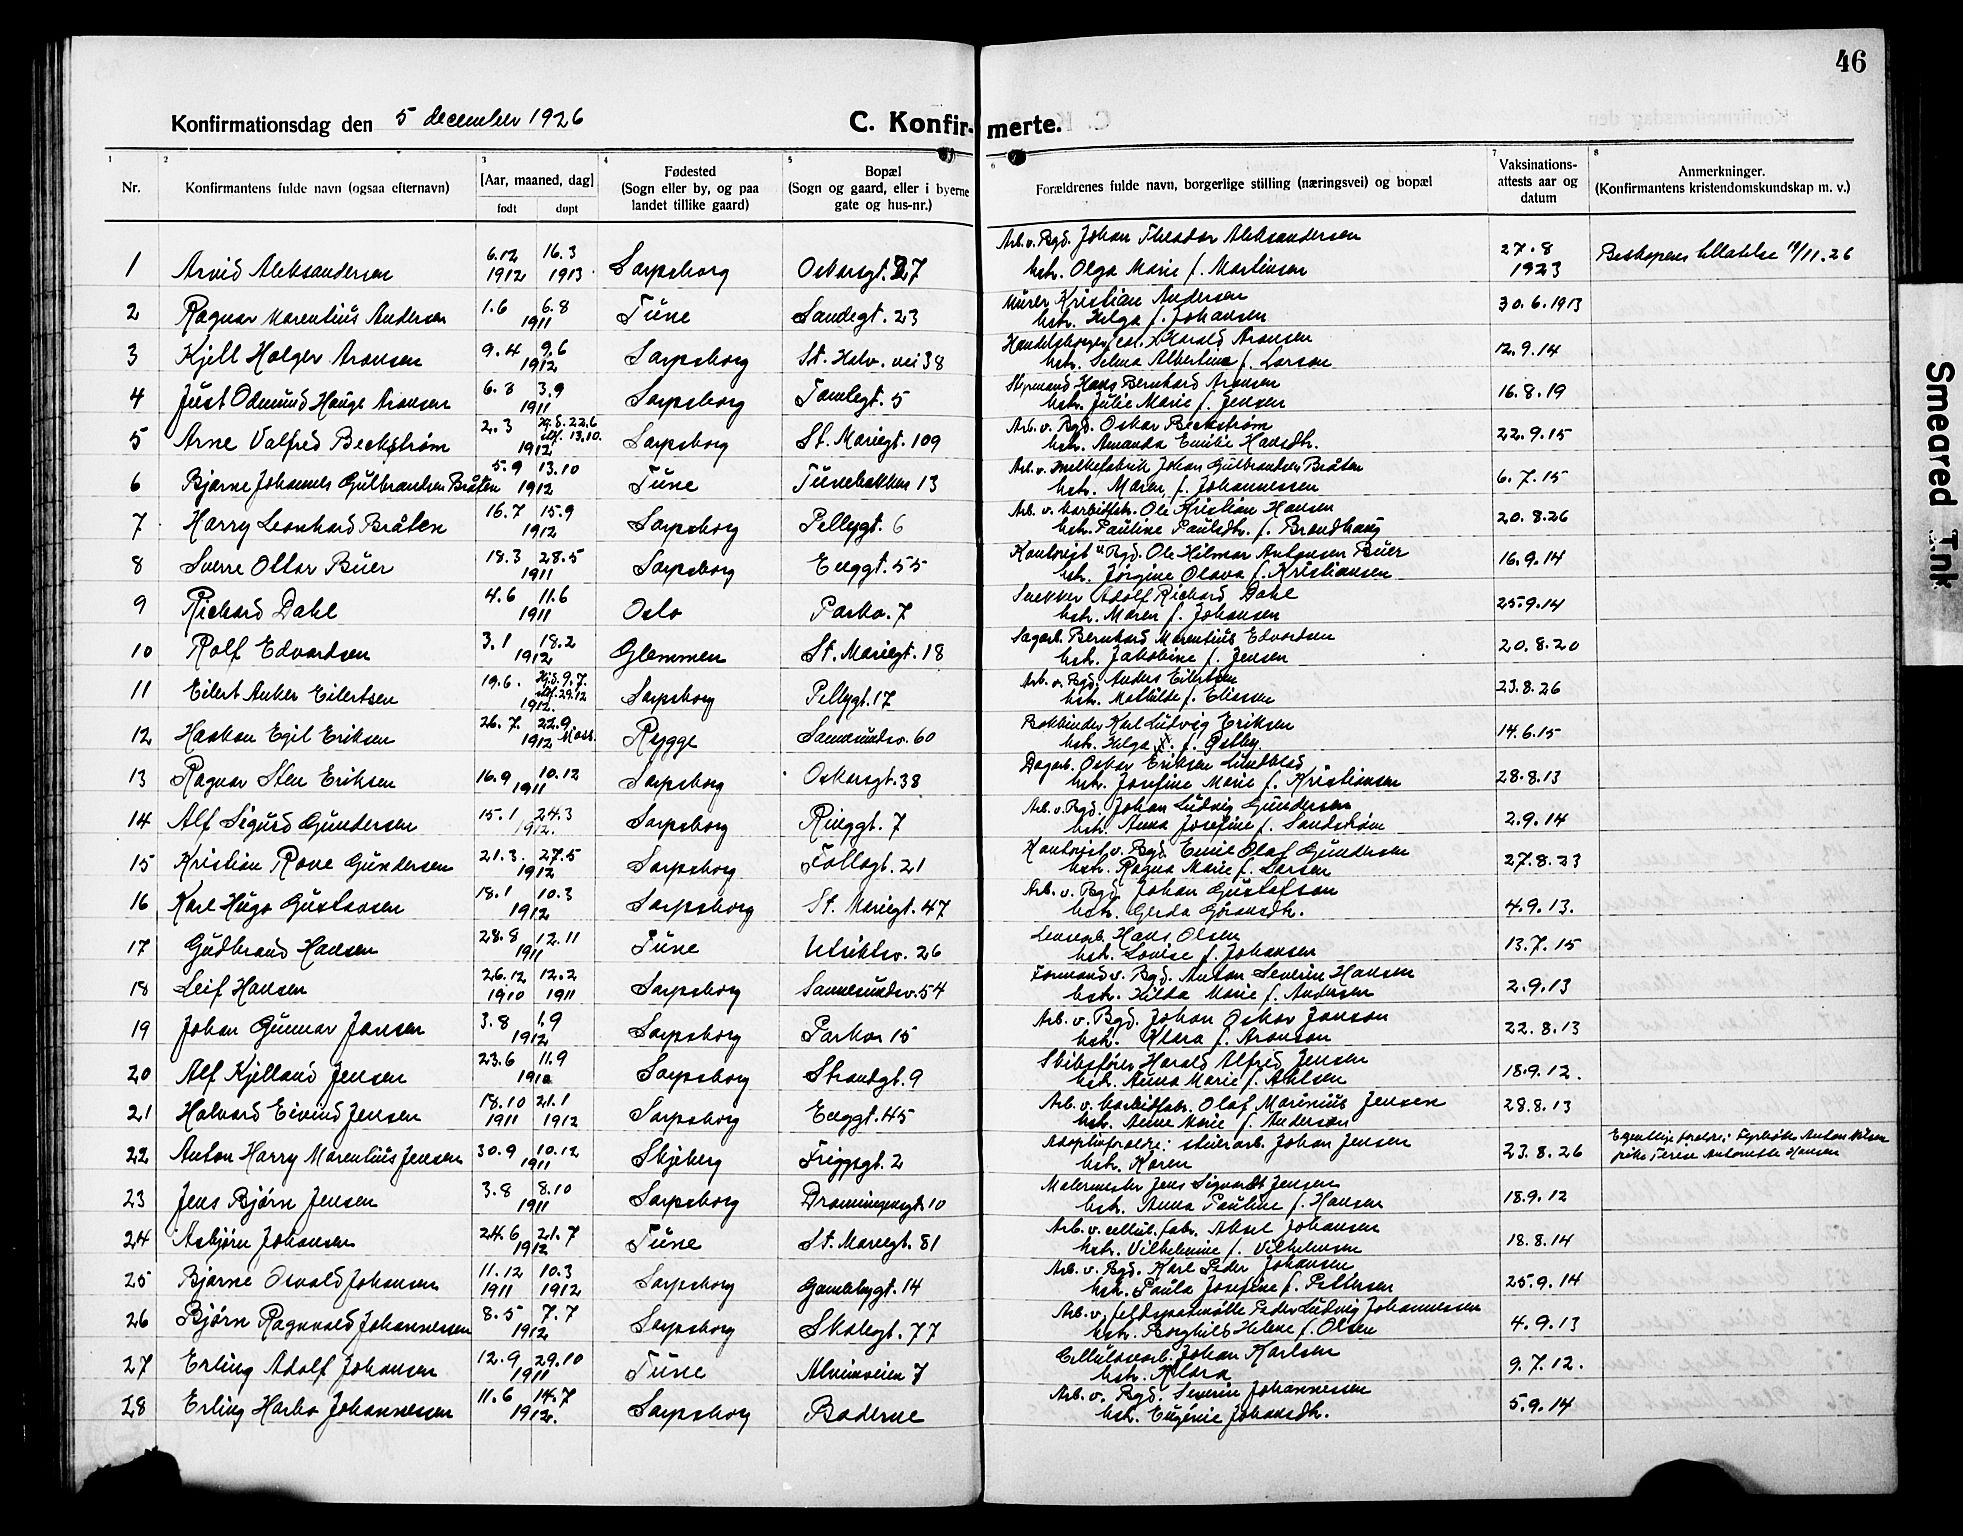 46
Konfirmationsdag den 5 december 1926
C. Konfir- merte.
Smeared Ink
1 2 3 4 5 6 7 8
Nr. Konfirmantens fulde navn (ogsaa efternavn) [Aar, maaned, dag] født døpt Fødested (Sogn eller by, og paa landet tillike gaard) Bopæl (Sogn og gaard, eller i byerne gate og hus-nr.) Forældrenes fulde navn, borgerlige stilling (næringsvei) og bopæl Vaksinations-attests aar og datum Anmerkninger. (Konfirmantens kristendomskundskap m. v.)
Arb. v. Bgd. Johan Theodor Aleksandersen
1 Arvid Aleksandersen 6.12 1912 16.3 1913 Sarpsborg Oskarsgt. 27 hstr. Olga Marie f. Martinsen 27.8 1923 Biskopens tillatelse /11.26
Murer Kristian Andersen
2 Ragnar Marentius Andersen 1.6 6.8 1911 Tune Sandegt. 23 hstr. Helga f. Johansen 30.6.1913
Harald Aronsen
3 Kjell Holger Aronsen 9.4 9.6 1912 Sarpsborg St. Halv. vei 38 hstr. Selma Albertine f. Larson 12.9.14
Styrmand Hans Bernhard Aronsen
4 Just Odmund Hauge Aronsen 6.8 3.9 1911 Sarpsborg Tomtegt. 5 hstr. Julie Marie f. Jensen 16.8.19
Arb. v. Bgd. Oskar Beckstrøm
5 Arne Valfred Beckstrøm 2.3 Hj.d. 22.6 13.10. 1912 Sarpsborg St. Mariegt. 109 hstr. Amanda Emilie Hansdtr. 22.9.15
Arb. v. melkefabrik Johan Gulbrandsen Bråten
6 Bjarne Johannes Gulbrandsen Bråten 5.9 13.10 1912 Tune Tunebakken 13 hstr. Maren f. Johannessen 6.7.15
Arb. v. Karbidfabr. Ole Kristian Hansen
7 Harry Leonhard Bråten 16.7 15.9 1912 Sarpsborg Pellygt. 6 hstr. Pauline Paulsdtr. f. Brandhaug 20.8.26
Kontorist v. Bgd. Ole Hilmar Antonsen Buer
8 Sverre Ottar Buer 18.3 28.5 1911 Sarpsborg Enggt. 55 hstr. Jørgine Olava f. Kristiansen 16.9.14
Snekker Adolf Richard Dahl
9 Richard Dahl 4.6 11.6 1911 Oslo Parkv. 7 hstr. Maren f. Johansen 25.9.14
Sagarb. Bernhard Marentius Edvardsen
10 Rolf Edvardsen 3.1 18.2 1912 Glemmen St. Mariegt. 18 hstr. Jakobine f. Jensen 20.8.20
Arb. v. Bgd. Anders Eilertsen
11 Eilert Anker Eilertsen 19.6. Hj.d. 9.7. 29.12 1912. Sarpsborg Pellygt. 17 hstr. Mathilde f. Elissen 23.8.26
Bokbinder Karl Ludvig Eriksen
12 Haakon Egil Eriksen 26.7. 22.9 1912 Moss. Rygge Sannesundsv. 60 hstr. Helga f. Østby 14.6.15
Dagarb. Oskar Eriksen Lundblad
13 Ragnar Sten Eriksen 16.9 10.12 1911 Sarpsborg Oskarsgt. 38 hstr. Josefine Marie f. Kristiansen 28.8.13
Arb. v. Bgd. Johan Ludvig Gundersen
14 Alf Sigurd Gundersen 15.1 24.3 1912. Sarpsborg Ringgt. 7 hstr. Anna Josefine f. Sandstrøm 2.9.14
Kontorist v. Bgd. Emil Olaf Gundersen
15 Kristian Rove Gundersen 21.3. 27.5 1912 Sarpsborg Tollogt. 21 hstr. Ragna Marie f. Larsen 27.8.23
Arb. v. Bgd. Johan Gustafson
16 Karl Hugo Gustavsen 18.1 10.3 1912 Sarpsborg St. Mariegt. 47 hstr. Gerda Göransdtr. 4.9.13.
Lensearb. Hans Olsen
17 Gudbrand Hansen 28.8 12.11 1911 Tune Utsiktsv. 26 hstr. Lovise f. Johansen 13.7.15
Formand v. Bgd. Anton Severin Hansen
18 Leif Hansen 26.12 1910 12.2 1911 Sarpsborg Sannesundsv. 54 hstr. Hilda Marie f. Andersen 2.9.13
Arb. v. Bgd. Johan Oskar Janson
19 Johan Gunnar Jansen 3.8 1.9 1912 Sarpsborg Parkv 15 hstr. Klara f. Aronson 22.8.13
Skibsfører Harald Alfred Jensen
20 Alf Kjelland Jensen 23.6 11.9 Sarpsborg Strandgt. 9 hstr. Anna Marie f. Ahlsen 18.9.12.
Arb. v. karbidfabr. Olaf Marinius Jensen
21 Halvard Eivind Jensen 18.10 1911 21.1 1912 Sarpsborg Enggt. 45 hstr. Anne Marie f. Anderson 28.8.13
Adoptivforeldre: stenarb. Johan Jensen
22 Anton Harry Marentius Jensen 30.9 10.12 1911 Skjeberg Friggsgt. 2 hstr. Karen 23.8.26 Egentlige foreldre: Fyrbøter Anton Nilsen pike Terese Antonette Hansen
Malermester Jens Sigvardt Jensen
23 Jens Bjørn Jensen 3.8 8.10 1911 Sarpsborg Dronningensgt. 10 hstr. Anna Pauline f. Hansen 18.9.12
Arb. v. cellul. fabr. Aksel Johansen
24 Asbjørn Johansen 24.6 21.7 1912 Tune St. Mariegt. 81 hstr. Vilhelmine f. Vilhelmsen 18.8.14
Arb. v. Bgd. Karl Peder Johansen
25 Bjarne Osvald Johansen 11.12 1911 10.3 1912 Sarpsborg Gamlebygt. 14 hstr. Paula Josefine f. Pettersen 25.9.14
Arb. v. feltspatmølle Peder Ludvig Johannessen
26 Bjørn Ragnvald Johannessen 8.5 7.7 1912 Sarpsborg Skolegt. 77 hstr. Borghild Helene f. Olsen 4.9.13
Cellulosearb. Johan Karlsen
27 Erling Adolf Johansen 12.9 29.10 1911 Tune Alvimveien 7 hstr. Klara 9.7.12.
Arb. v. Bgd. Severin Johannessen
28 Erling Harbo Johannessen 11.6 14.7 1912. Sarpsborg Boderne hstr. Eugénie Johansdtr. 5.9.14